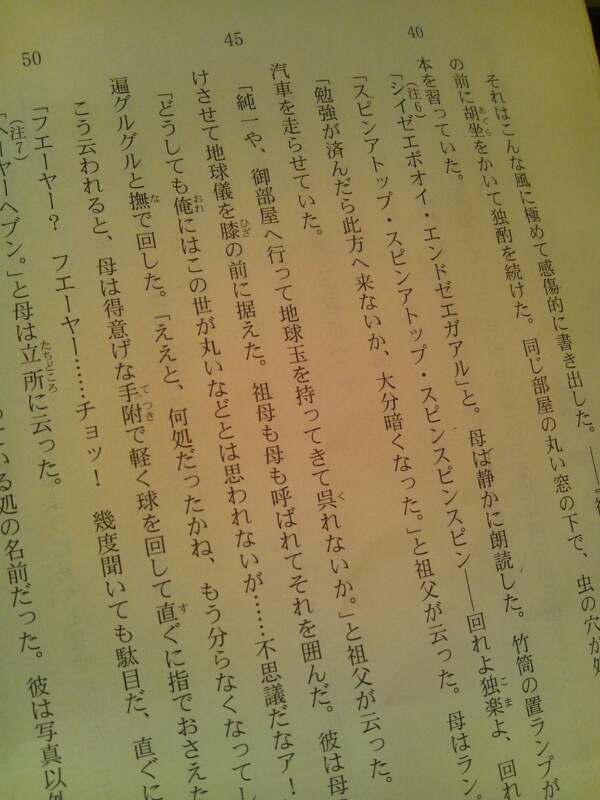 虫の穴が
それはこんな風に極めて感傷的に書き出した。――『
の前に胡坐をかいて独酌を続けた。同じ部屋の丸い窓の下で、
あぐら
本を習っていた。
40
「シイゼエボオイ・エンドゼエガアル」と。母は静かに朗読した。竹筒の置ランプが
(注6)
「スピンアトップ・スピンアトップ・スピンスピンスピン――回れよ独楽よ、回れ
こま
「勉強が済んだら此方へ来ないか、大分暗くなった。」と祖父が云った。母はラン
汽車を走らせていた。
「純一や、御部屋へ行って地球玉を持ってきて呉れないか。」と祖父が云った。
く
45
けさせて地球儀を膝の前に据えた。祖母も母も呼ばれてそれを囲んだ。彼は母
ひざ
「どうしても俺にはこの世が丸いなどとは思われないが……不思議だなア!
おれ
遍グルグルと撫で回した。「ええと、何処だったかね、もう分らなくなってし
な
こう云われると、母は得意げな手附で軽く球を回して直ぐに指でおさえた
てつき
す
「フエーヤー? フエーヤー……チョッ! 幾度聞いても駄目だ、直ぐに
50
「ヘーヤーヘブン。」と母は立所に云った。
(注7)
たちどころ
る処の名前だった。彼は写真以